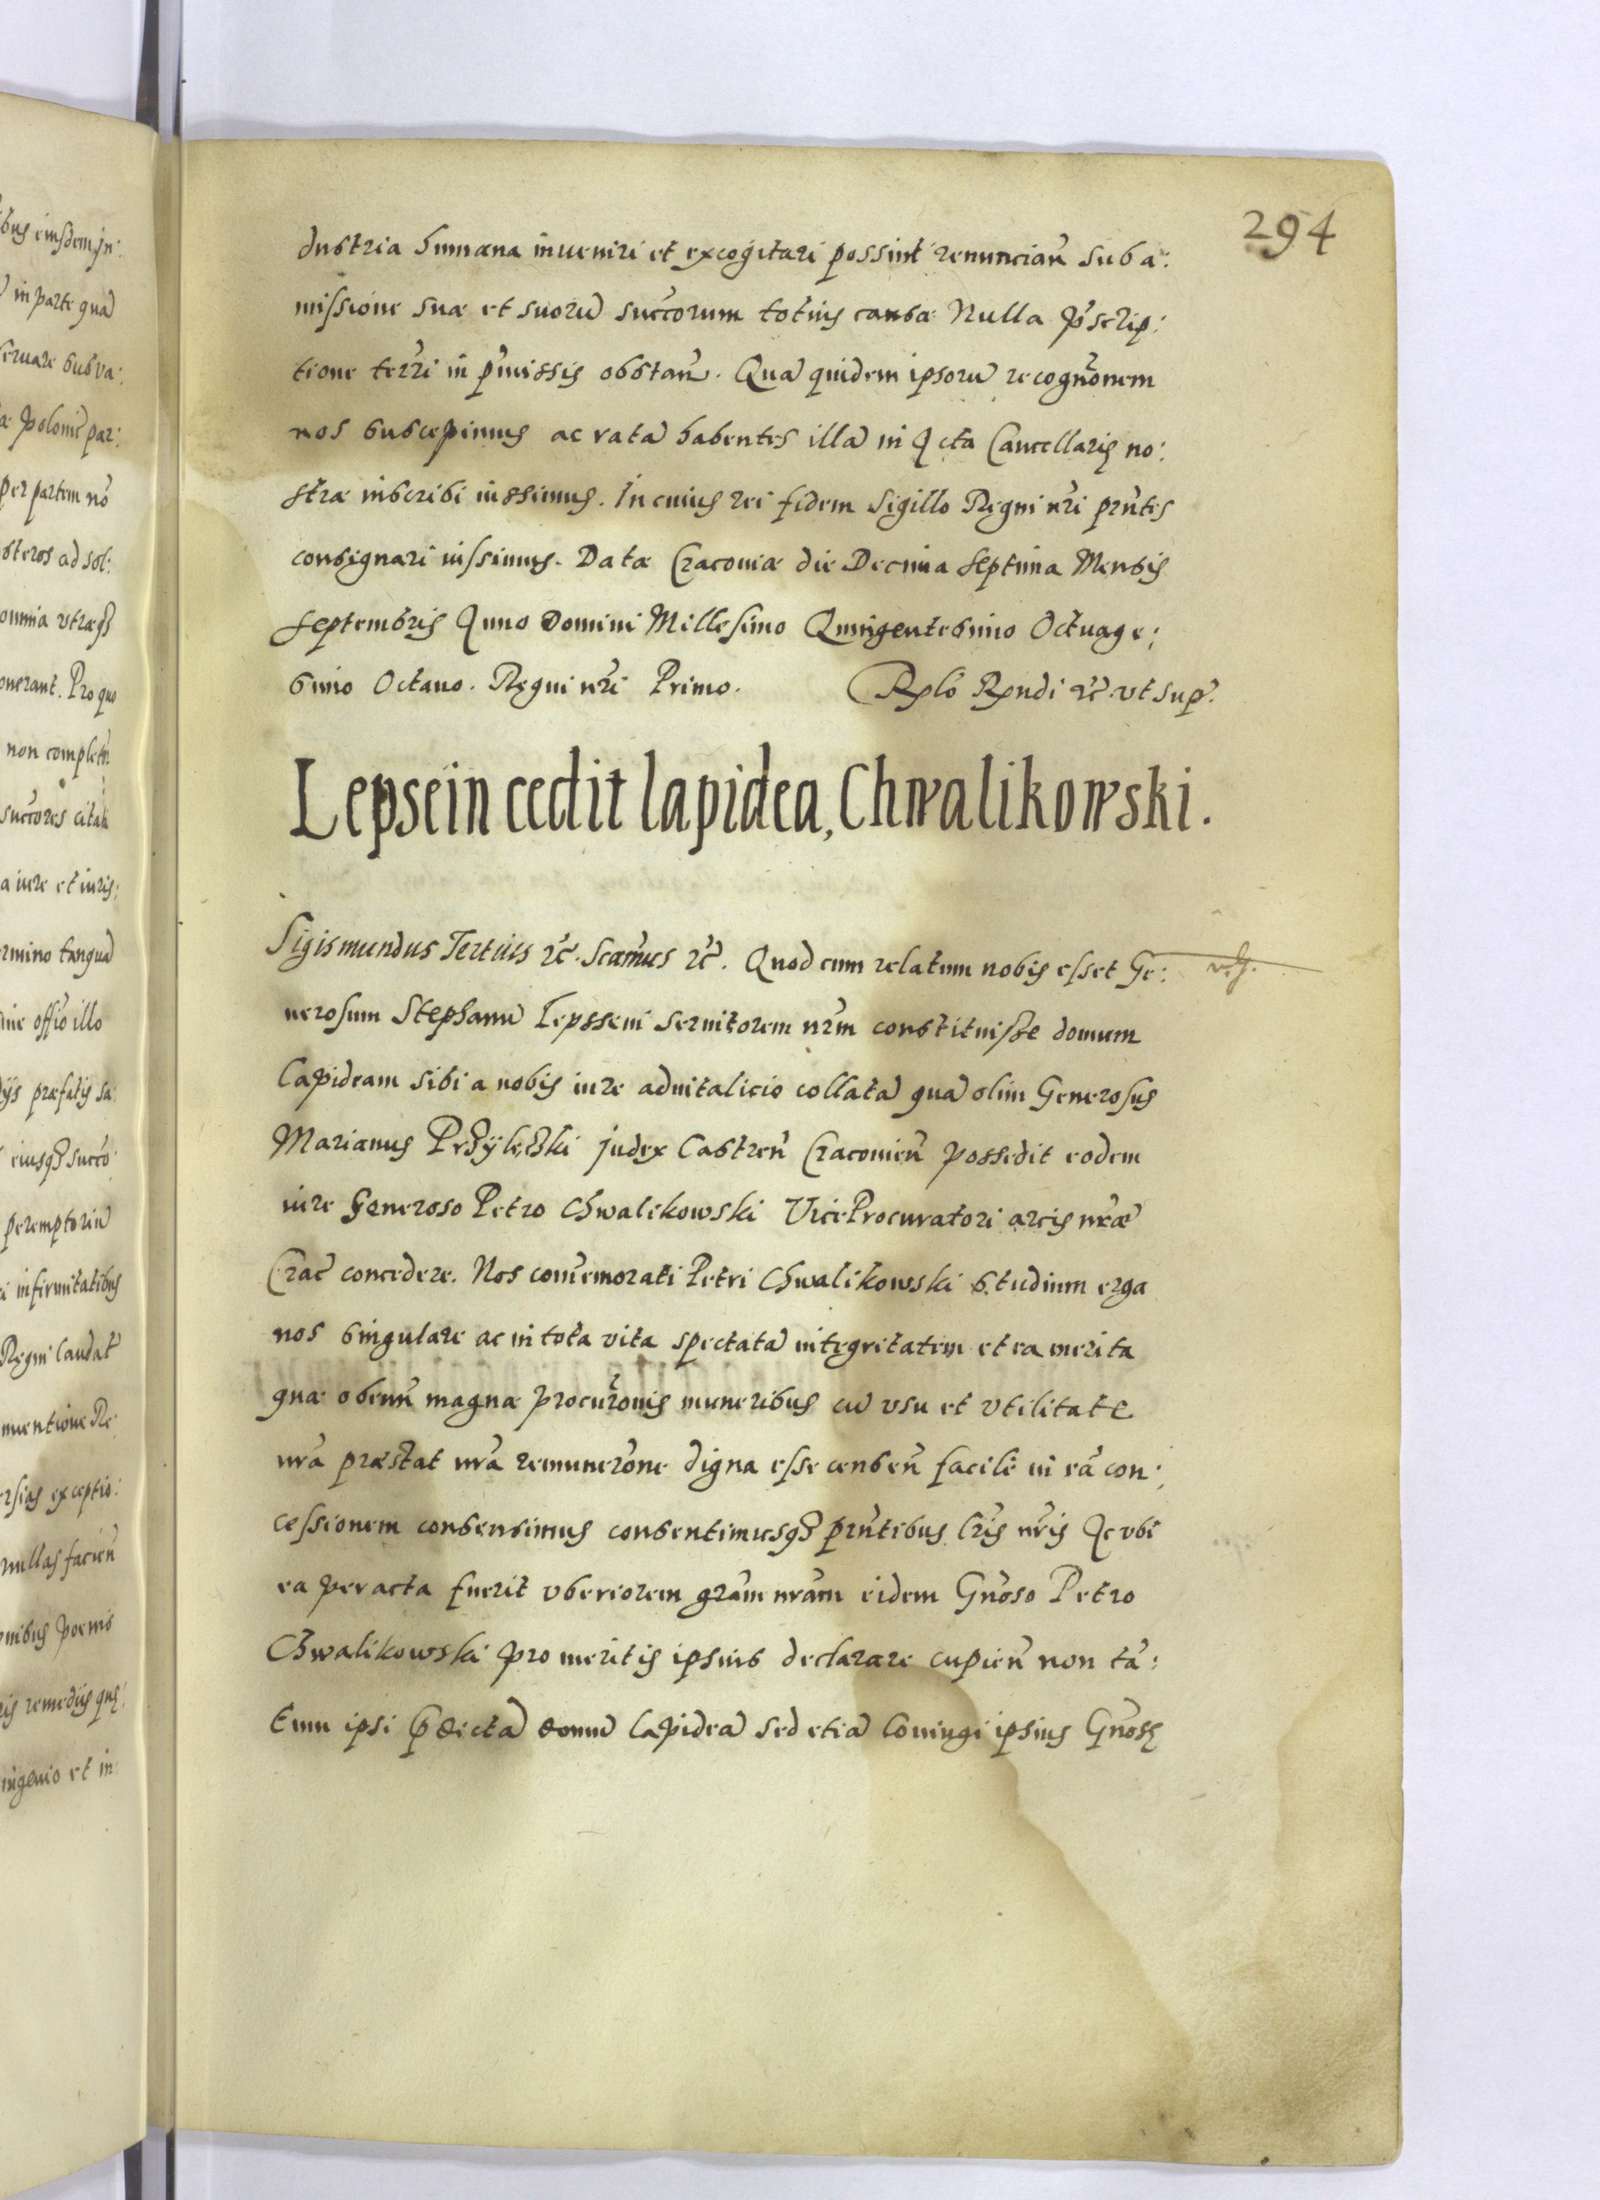 294
dustria humana inueniri et excogitari possint renuncian̄ sub a:
missione suæ et suorū succ̄orum totius causæ Nulla p̄scrip:
tione terr̄i in p̄missis obstan̄. Quā quidem ipsorū recogn̄onem
nos suscepimus ac ratā habentes illā in Acta Cancellariȩ no:
stræ inscribi iussimus. In cuius rei fidem Sigillo Regni nr̄i prn̄tes
consignari iussimus. Datæ Cracouiæ die Decima septima Mensis
septembris Anno Domini Millesimo Quingentesimo Octuage:
simo Octauo. Regni nr̄i Primo. Rp̄lo Rp̄ndi ꝛc̄. vt sup̄.
Lepsein cedit lapidea, Chwalikowski.
Sigismundus Tertius ꝛc̄. Scam̄us ꝛc̄. Quod cum relatum nobis esset Ge:
nerosum Stephanū Lepssein seruitorem nr̄m constituisse domum
lapideam sibi a nobis iure aduitalicio collatā quā olim Generosus
Marianus Przyłęczki judex Castren̄ Cracouien̄ possedit eodem
iure Generoso Petro Chwalikowski ViceProcuratori arcis nr̄æ
Crac̄ concedere. Nos com̄emorati Petri Chwalikowski studium erga
nos singulare ac in tota vita spectatā integritatem et ea merita
quæ obeun̄ magnæ procur̄onis muneribus cū vsu et vtilitate
nr̄a præstat nr̄a remuner̄one digna esse censen̄ facile in eā con:
cessionem consensimus consentimusqȝ prn̄tibus lr̄is nr̄is Ac vbi
ea peracta fuerit vberiorem grām nrām eidem Gn̄oso Petro
Chwalikowski pro meritis ipsius declarare cupien̄ non tā:
tum ipsi p̄dictā domū lapideā sed etiā Coniugi ipsius Gn̄osȩ